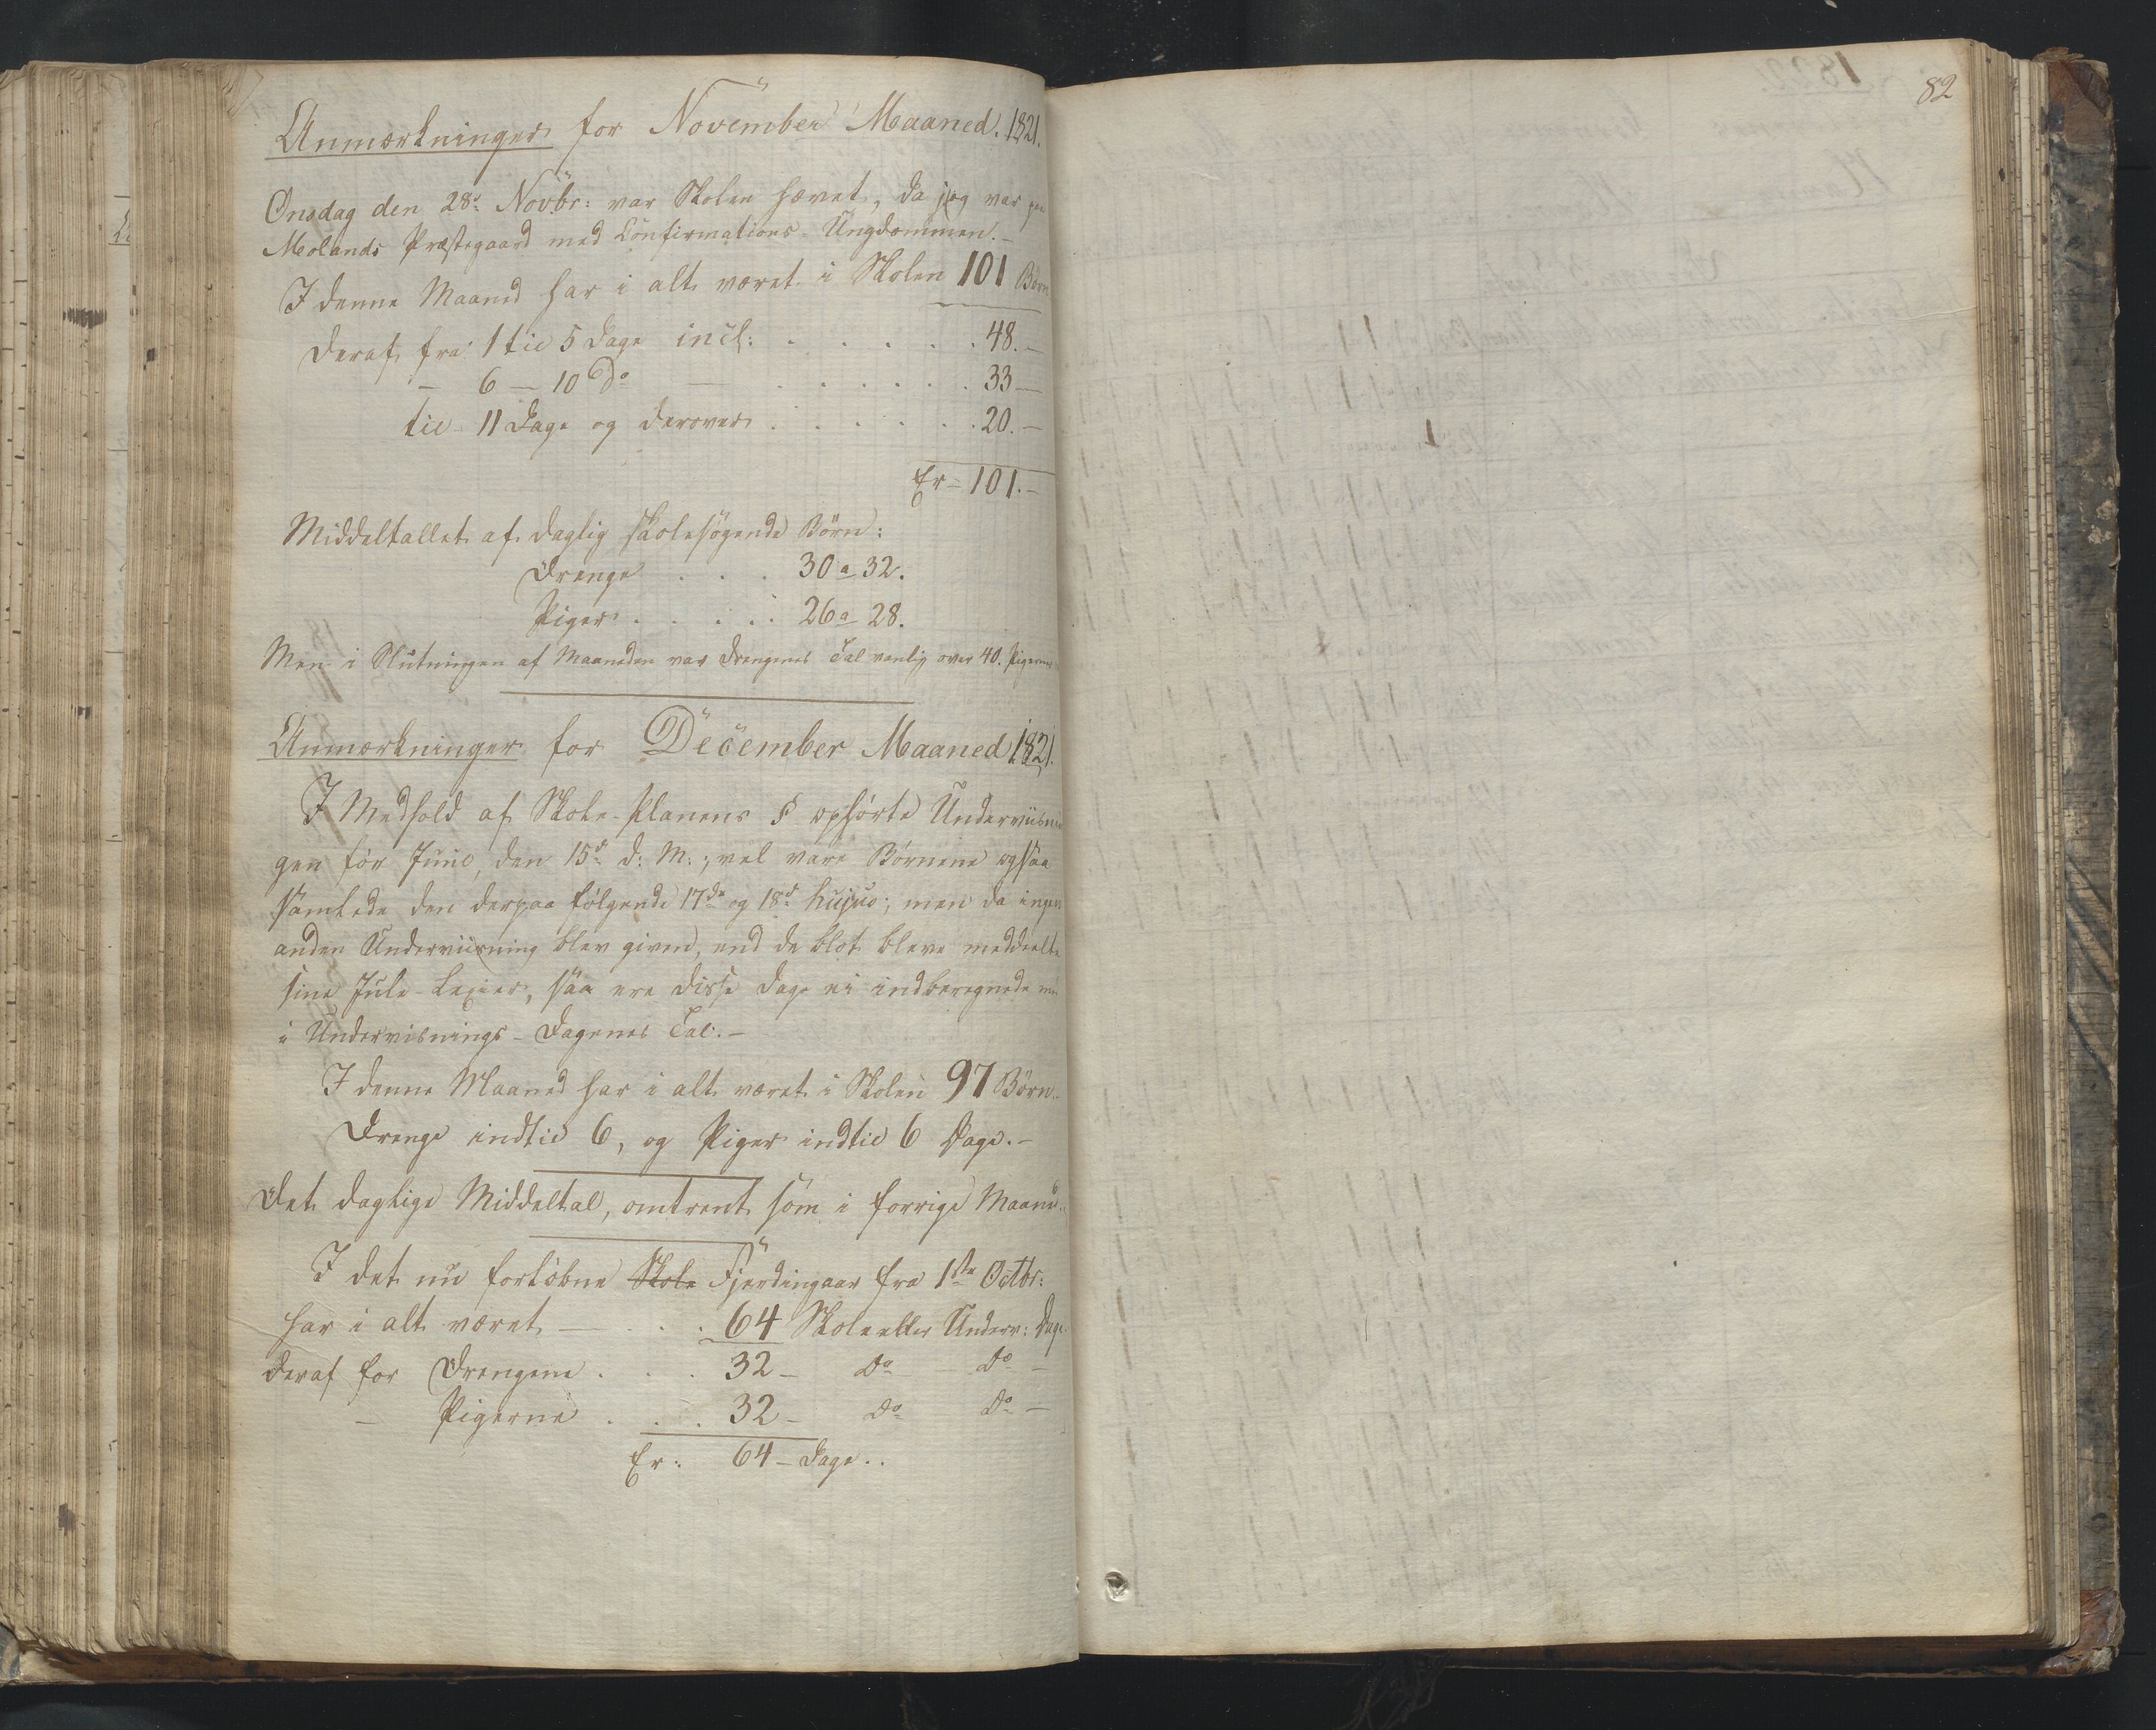 Anmærkninger for November Maaned. 1821.
Onsdag den 28d Novbr: var Skolen hævet, da jeg var paa
Molands Præstegaard med Confirmations-Ungdommen.-
I denne Maaned har i alt været i Skolen 101 Børn
Deraf fra 1 til 5 Dage incl: . . . . . . 48.-
- 6 - 10 Do - . . . . . . 33-
til 11 Dage og derover . . . . . . 20.-
Er - 101.-
Middeltallet af daglig skolesøgende Børn:
Drenge . . . 30 a 32.
Piger . . . . . 26 a 28.
Men i Slutningen af Maaneden var Drengenes Tal vanlig over 40. Pigernes
Anmærkninger for December Maaned 1821.
I Medhold af Skole-Planens § ophørte Underviisnin
gen før Juul, den 15d d: M:, vel vare Børnene ogsaa
samlede den derpaa følgende 17de og 18d hujus; men da ingen
anden Underviisning blev given, end de blot bleve meddeelte
sine Jule-Lexier, saa ere disse Dage ei indberegnede
i Undervisnings-Dagenes Tal.-
I denne Maaned har i alt været i Skolen 97 Børn.
Drenge indtil 6, og Piger indtil 6 Dage.-
Det daglige Middeltal, omtrent som i forrige Maaned.
I det nu forløbne Skole Fjerdingaar fra 1ste Octbr:
har i alt været - . . 64 Skole eller Underv: Dage.
deraf for Drengene . . . 32 - Do Do -
- Pigerne . . . 32 - Do Do -
Er: 64 - Dage..
82